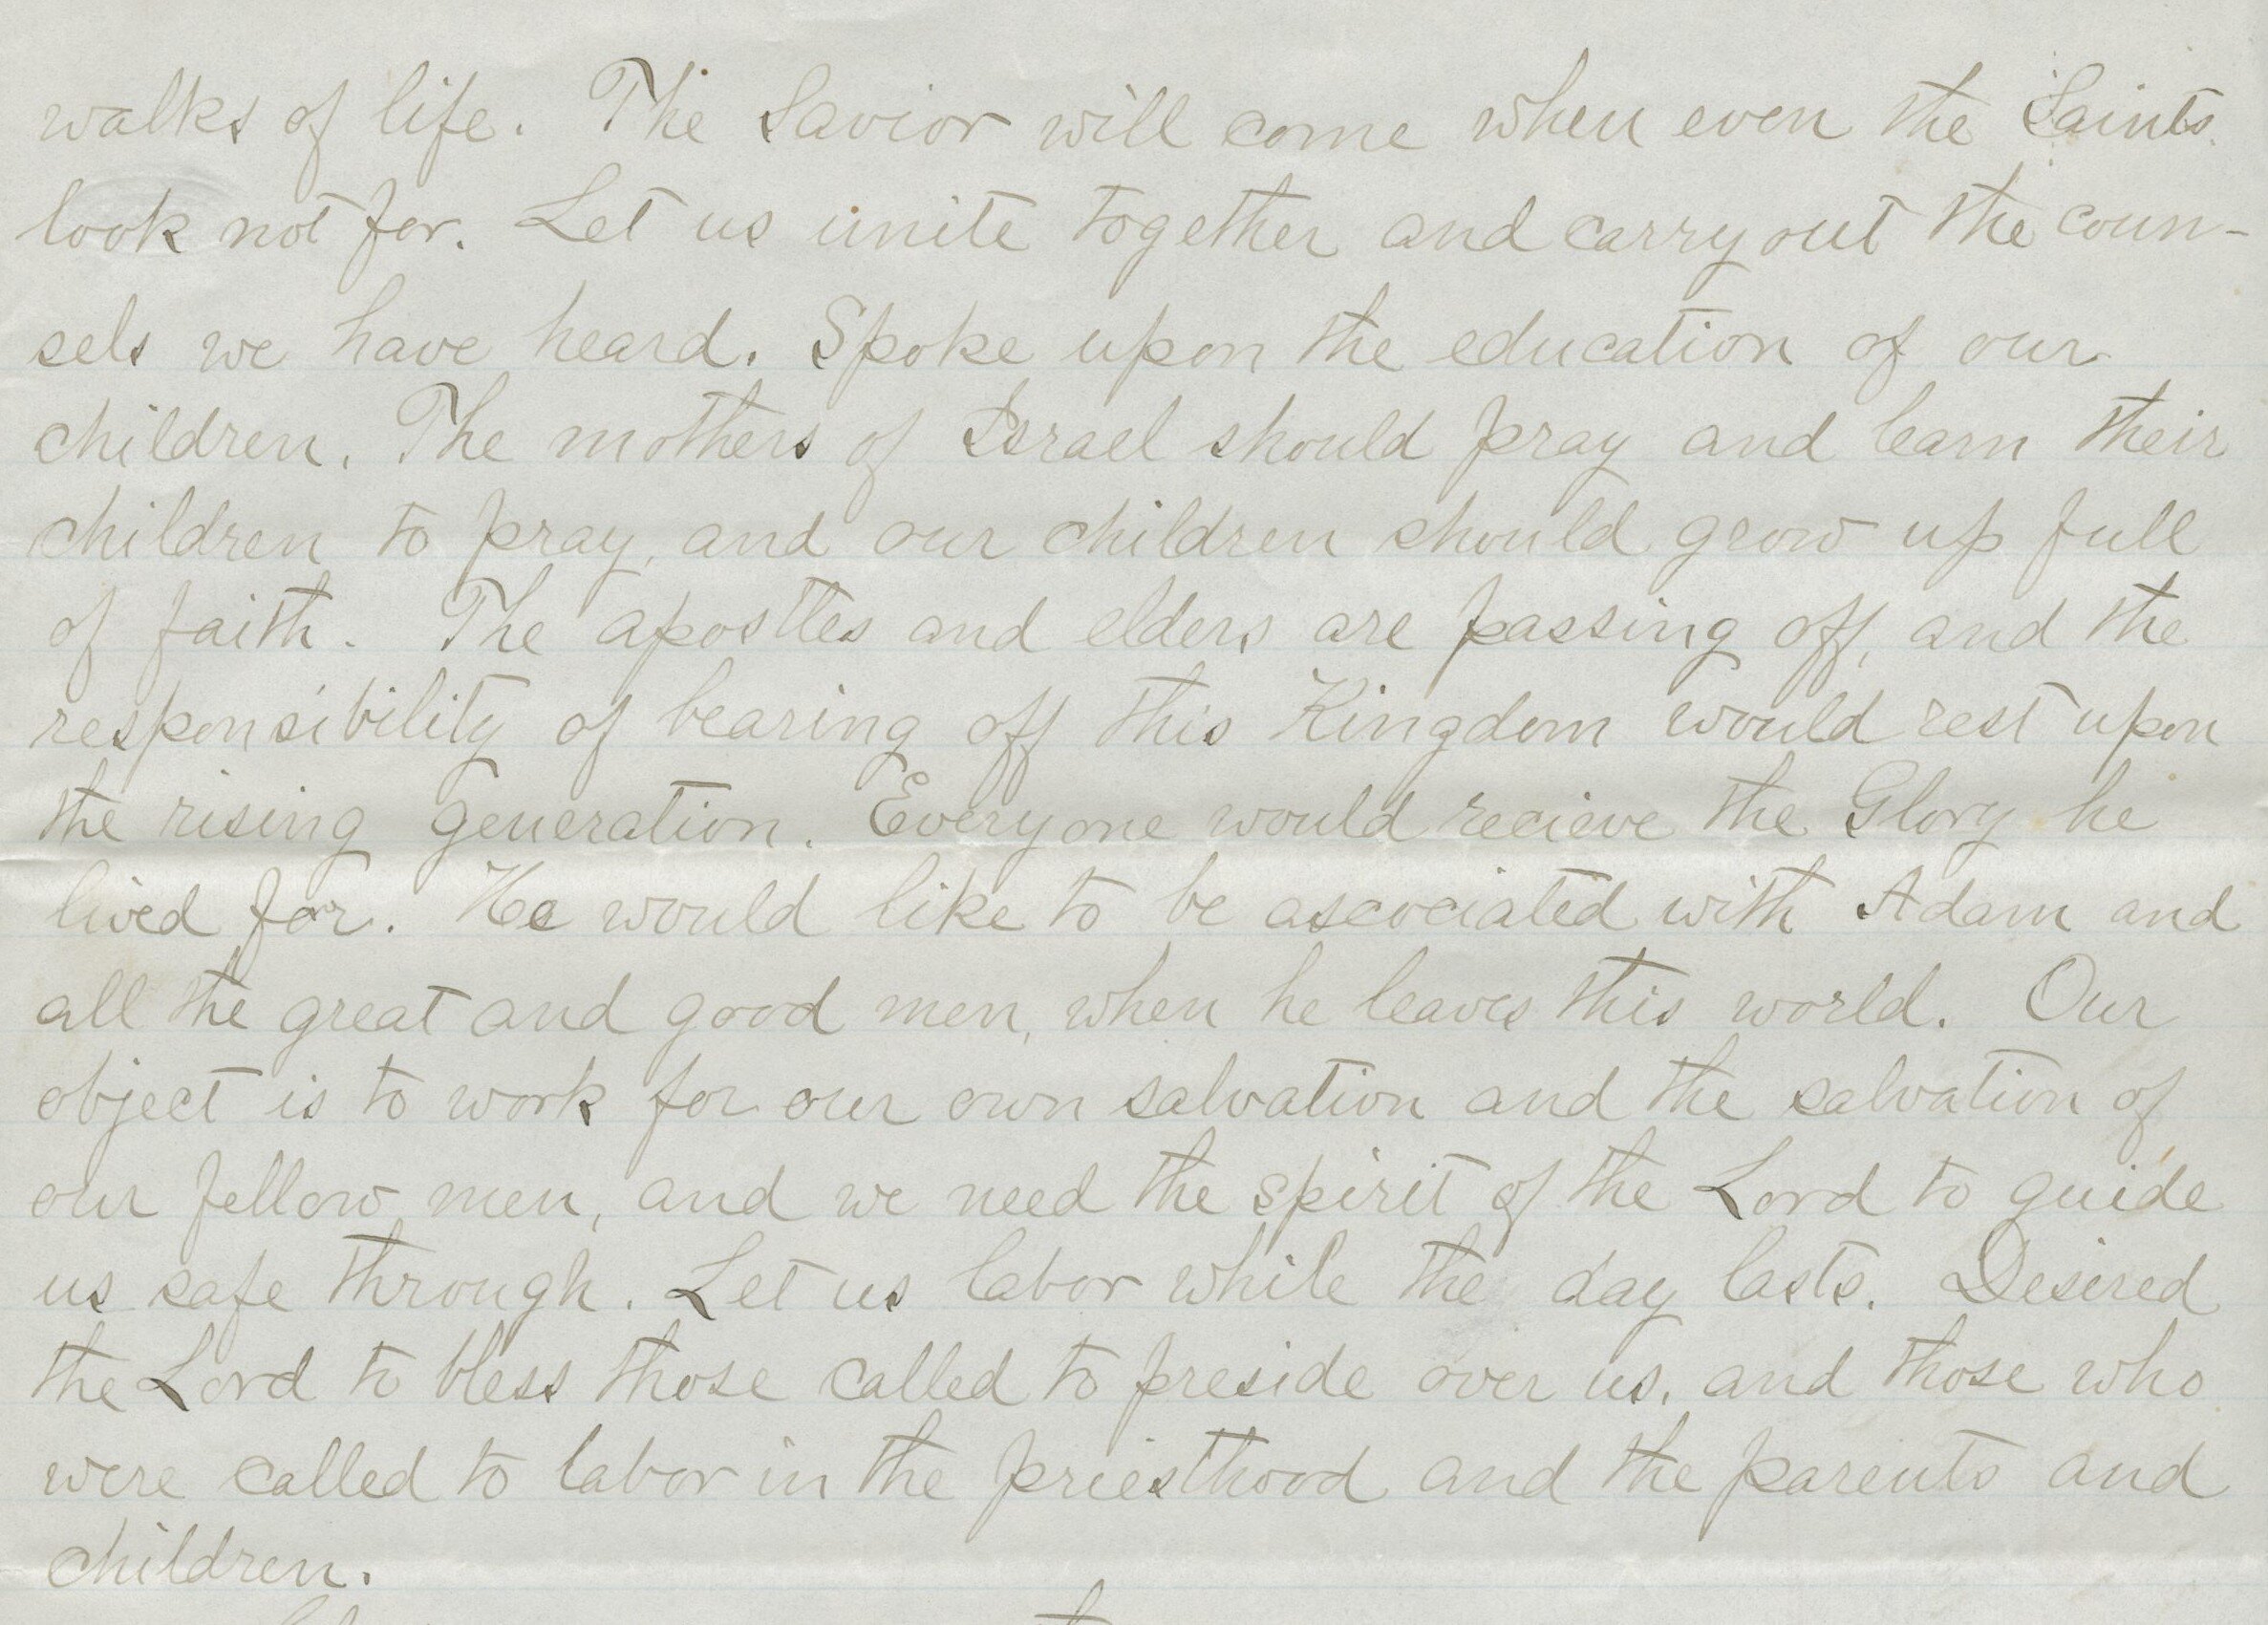 walks of life. The Savior will come when even the Saints
look not for. Let us unite together and carry out the coun-
sels we have heard. Spoke upon the education of our
children. The mothers of Israel should pray and learn their
children to pray, and our children should grow up full
of faith. The apostles and elders are passing off, and the
responsibility of bearing off this Kingdom would rest upon
the rising generation. Everyone would recieve the Glory he
lived for. He would like to be ascociated with Adam and
all the great and good men, when he leaves this world. Our
object is to work for our own salvation and the salvation of
our fellow men, and we need the spirit of the Lord to guide
us safe through. Let us labor while the day lasts. Desired
the Lord to bless those called to preside over us, and those who
were called to labor in the priesthood and the parents and
children.